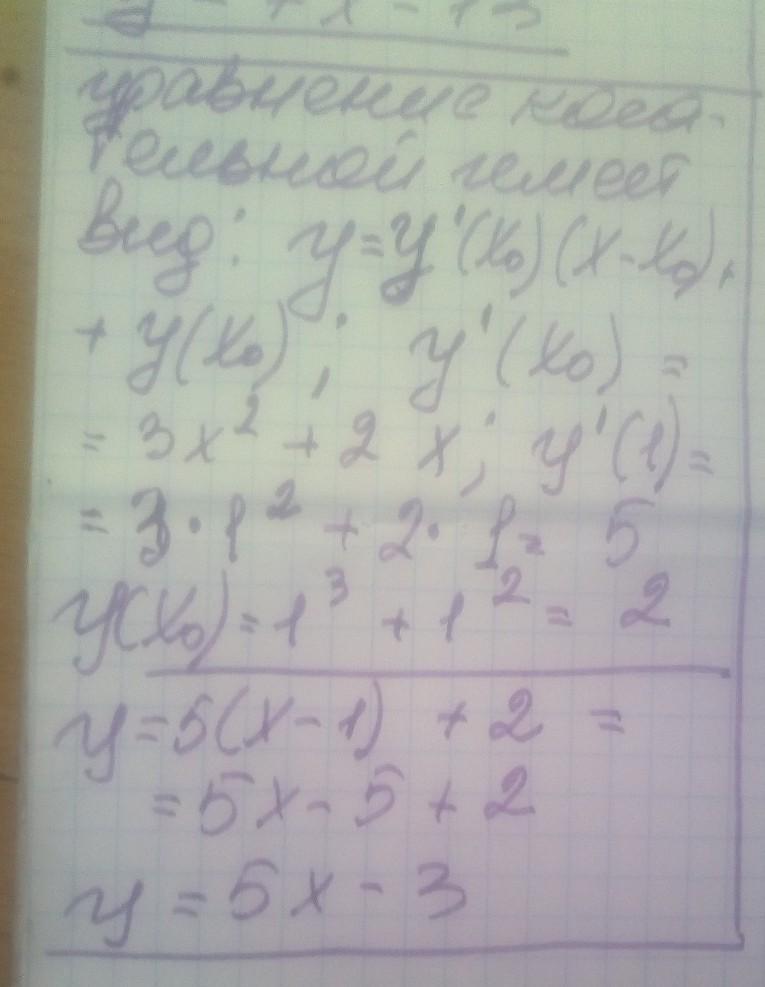 уравнение каса-
тельной имеет
вид: y=y'(x₀)(x-x₀)+
+ y(x₀); y'(x₀) =
= 3x² + 2x; y'(1)=
= 3·1² + 2·1= 5
y(x₀)=1³ + 1² = 2
y=5(x-1) + 2 =
=5x-5+2
y = 5x - 3